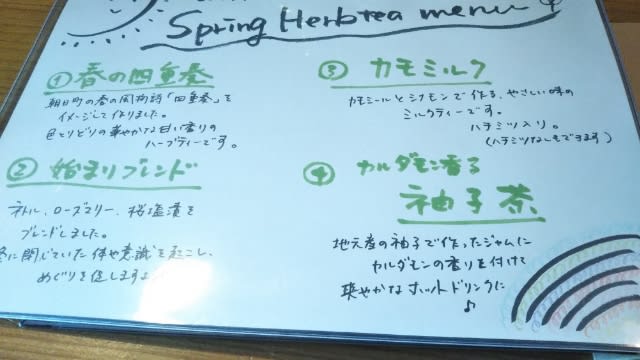 Spring Herbtea menu
① 春の四重奏
朝日町の春の風物詩「四重奏」を
イメージして作りました。
色とりどりの華やかな甘い香りの
ハーブティーです。
② 始まりブレンド
ネトル、ローズマリー、桜塩漬を
ブレンドしました。
冬に閉じていた体や意識を起こし、
めぐりを促しますよ
③ カモミルク
カモミールとシナモンで作る、やさしい味の
ミルクティーです。
ハチミツ入り。
(ハチミツなしもできます)
④ カルダモン香る
柚子茶
地元産の柚子で作ったジャムに
カルダモンの香りを付けて
爽やかなホットドリンクに
♪